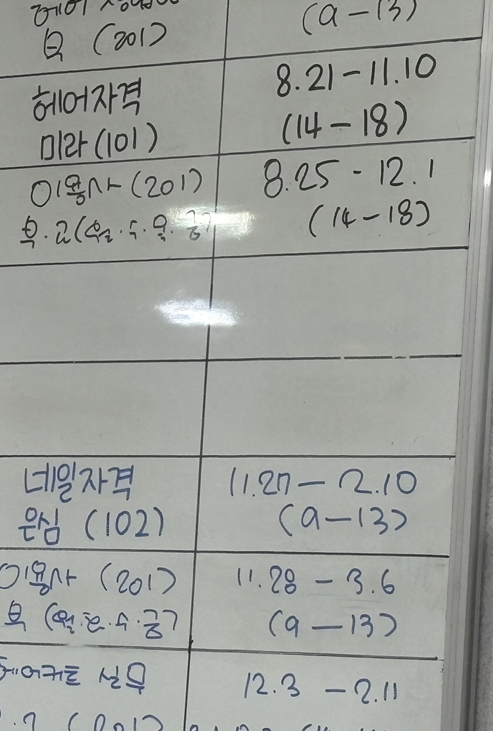 복 (201)
(9-13)
헤어자격
미라(101)
8.21-11.10
(14-18)
이용사 (201)
8.25 - 12.1
(14-18)
네일자격
은심 (102)
11.27 - 2.10
(9-13)
이용사 (201)
11.28 - 3.6
복
(9-13)
헤어커트 실무
12.3 - 2.11